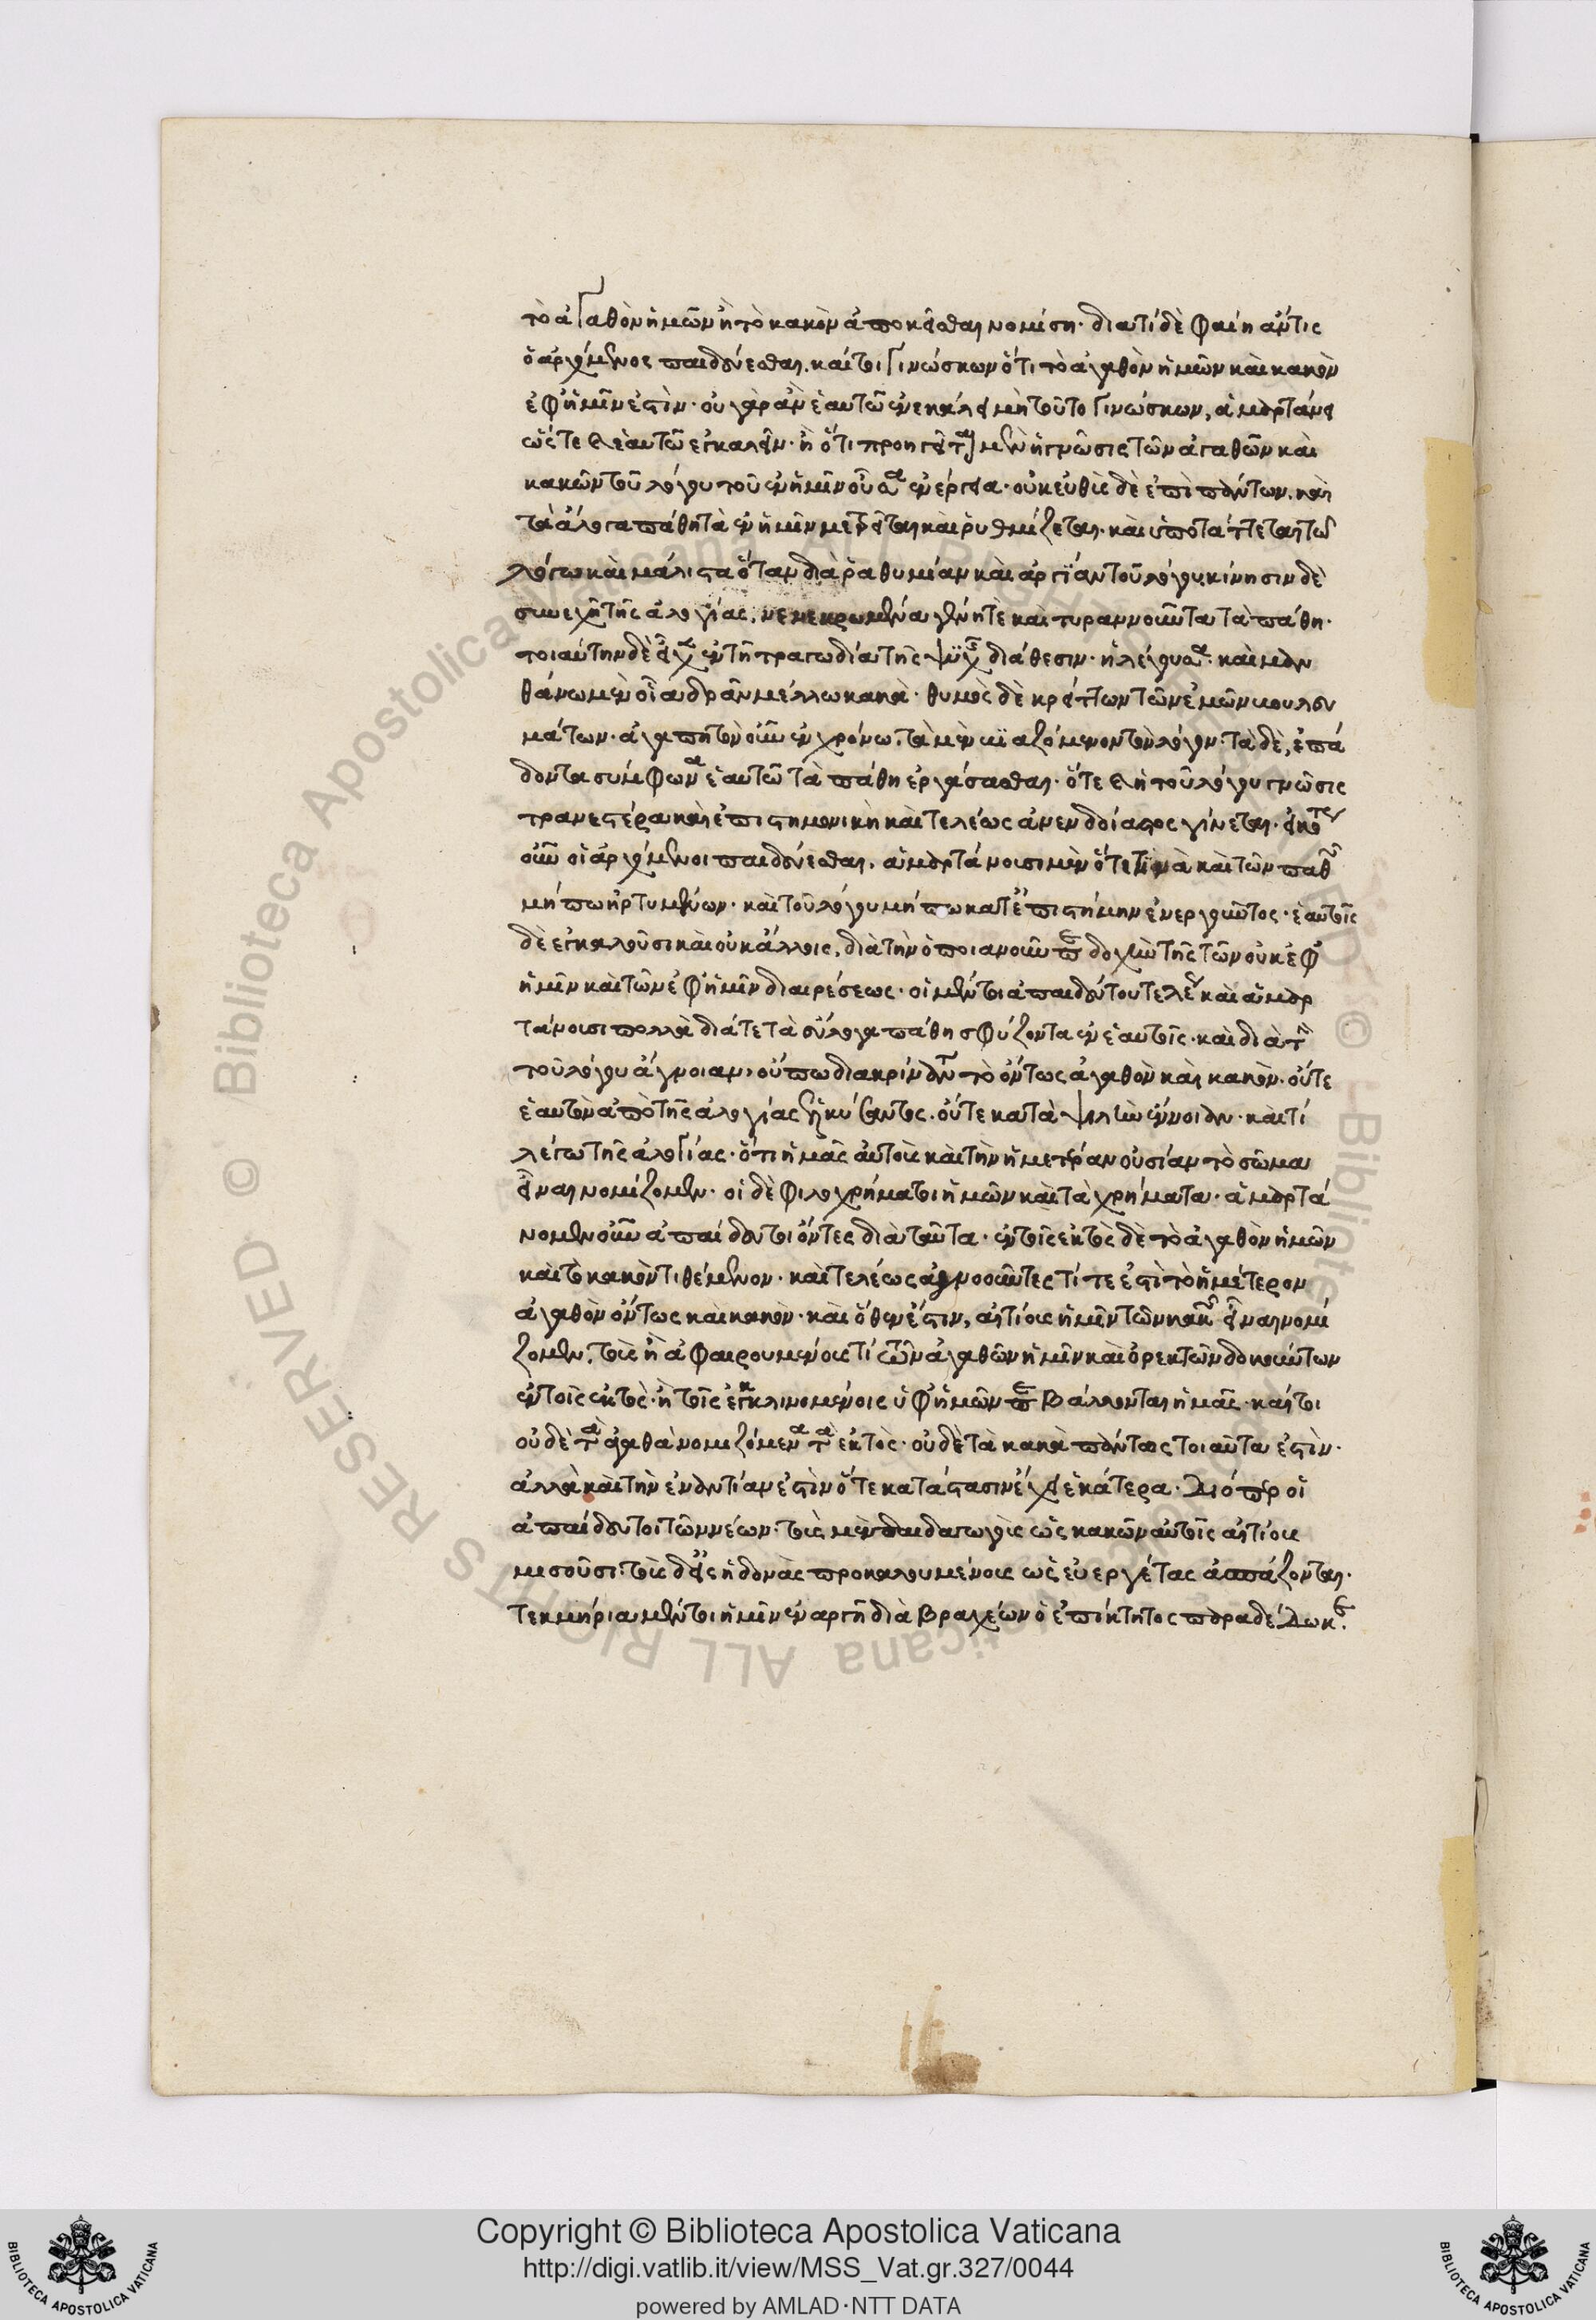 τὸ ἀγαθὸν ἡμῶν ἢ τὸ κακὸν ἀποκεῖσθαι νομίση· διατί δὲ φαίη ἄν τις
ὁ ἀρχόμενος παιδεύεσθαι. καίτοι γινώσκων ὅτι τὸ ἀγαθὸν ἡμῶν καὶ κακὸν
ἐφ' ἡμῖν ἐστὶν· οὐ γὰρ ἂν ἑαυτῶ ἐνεκάλει μὴ τοῦτο γινώσκων, ἁμαρτάνει
ὥστε ἑαυτῶ ἐγκαλεῖν· ἢ ὅτι προηγεῖται μὲν ἡ γνῶσις τῶν ἀγαθῶν καὶ
κακῶν τοῦ λόγου τοῦ ἐν ἡμῖν οὖσα ἐνέργεια· οὐκ εὐθὺς δὲ ἐπὶ πάντων. καὶ
τὰ ἄλογα πάθη τὰ ἐν ἡμῖν μετρεῖται καὶ ῥυθμίζεται· καὶ ὑποτάττεται τῶ
λόγω καὶ μάλιστα ὅταν διὰ ῥαθυμίαν καὶ ἀργίαν τοῦ λόγου. κίνησιν δὲ
συνεχῆ τῆς ἀλογίας, νενεκρωμένα γένηται καὶ τυραννοῦντα τὰ πάθη·
τοιαύτην δὲ εἶχεν ἐν τῆ τραγωδία τῆς ψυχῆς διάθεσιν· ἡ λέγουσα· καὶ μαν
θάνω μὲν οἷα δρᾶν μέλλω κακὰ· θυμὸς δὲ κρείττων τῶν ἐμῶν βουλευ
μάτων· ἀγαπητὸν οὖν ἐν χρόνω. τὰ μὲν βιαζόμενον τὸν λόγον· τὰ δὲ, ἐπά
δοντα σύμφωνα ἑαυτῶ τὰ πάθη ἐργάσασθαι· ὅτε ἡ τοῦ λόγου γνῶσις
τρανεστέρα καὶ ἐπιστημονικὴ καὶ τελέως ἀνενδοίαστος γίνεται· εἰκότως
οὖν οἱ ἀρχόμενοι παιδεύεσθαι. ἁμαρτάνουσι μὲν ὅτε τινὰ καὶ τῶν παθῶν
μήπω ἠρτυμένων· καὶ τοῦ λόγου μήπω κατ' ἐπιστήμην ἐνεργοῦντος· ἑαυτοῖς
δὲ ἐγκαλοῦσι καὶ οὐκ ἄλλοις, διὰ τὴν ὁποιανοῦν παραδοχὴν τῆς τῶν οὐκ ἐφ'
ἡμῖν καὶ τῶν ἐφ' ἡμῖν διαιρέσεως· οἱ μέντοι ἀπαίδευτοι τελέως καὶ ἁμαρ
τάνουσι πολλὰ διά τε τὰ ἄλογα πάθη σφύζοντα ἐν ἑαυτοῖς· καὶ διὰ τὴν
τοῦ λόγου ἄγνοιαν· οὔπω διακρίναντος τὸ ὄντως ἀγαθὸν καὶ κακὸν· οὔτε
ἑαυτὸν ἀπὸ τῆς ἀλογίας ἑλκύσαντος· οὔτε κατὰ ψιλὴν ἔννοιαν· καὶ τί
λέγω τῆς ἀλογίας· ὅτι ἡμᾶς αὐτοὺς καὶ τὴν ἡμετέραν οὐσίαν τὸ σῶμα
εἶναι νομίζομεν· οἱ δὲ φιλοχρήματοι ἡμῶν καὶ τὰ χρήματα· ἁμαρτά
νομεν οὖν ἀπαίδευτοι ὄντες διὰ ταῦτα· ἐν τοῖς ἐκτὸς δὲ τὸ ἀγαθὸν ἡμῶν
καὶ τὸ κακὸν τιθέμενον· καὶ τελέως ἀγνοοῦντες τί τέ ἐστι τὸ ἡμέτερον
ἀγαθὸν ὄντως καὶ κακὸν· καὶ ὅθεν ἐστιν, αἰτίους ἡμῖν τῶν κακῶν εἶναι νομί
ζομεν, τοὺς ἢ ἀφαιρουμένους τί τῶν ἀγαθῶν ἡμῖν καὶ ὀρεκτῶν δοκούντων
ἐν τοῖς ἐκτὸς· ἢ τοῖς ἐκκλινομένοις ὑφ' ἡμῶν περιβάλλονται ἡμᾶς· καίτοι
οὐδὲ τὰ ἀγαθὰ νομιζόμενα τὰ ἐκτὸς· οὐδὲ τὰ κακὰ πάντως τοιαῦτα ἐστὶν·
ἀλλὰ καὶ τὴν ἐναντίαν ἐστὶν ὅτε κατάστασιν ἔχει ἑκάτερα· Διόπερ οἱ
ἀπαίδευτοι τῶν νέων· τοὺς μὲν παιδαγωγοὺς ὡς κακῶν αὐτοῖς αἰτίους
μισοῦσι· τοὺς δ' εἰς ἡδονὰς προκαλουμένους ὡς εὐεργέτας ἀσπάζονται·
τεκμήρια μέντοι ἡμῖν ἐναργῆ διὰ βραχέων ὁ ἐπίκτητος παραδέδωκε.
Copyright © Biblioteca Apostolica Vaticana
http://digi.vatlib.it/view/MSS_Vat.gr.327/0044
powered by AMLAD·NTT DATA